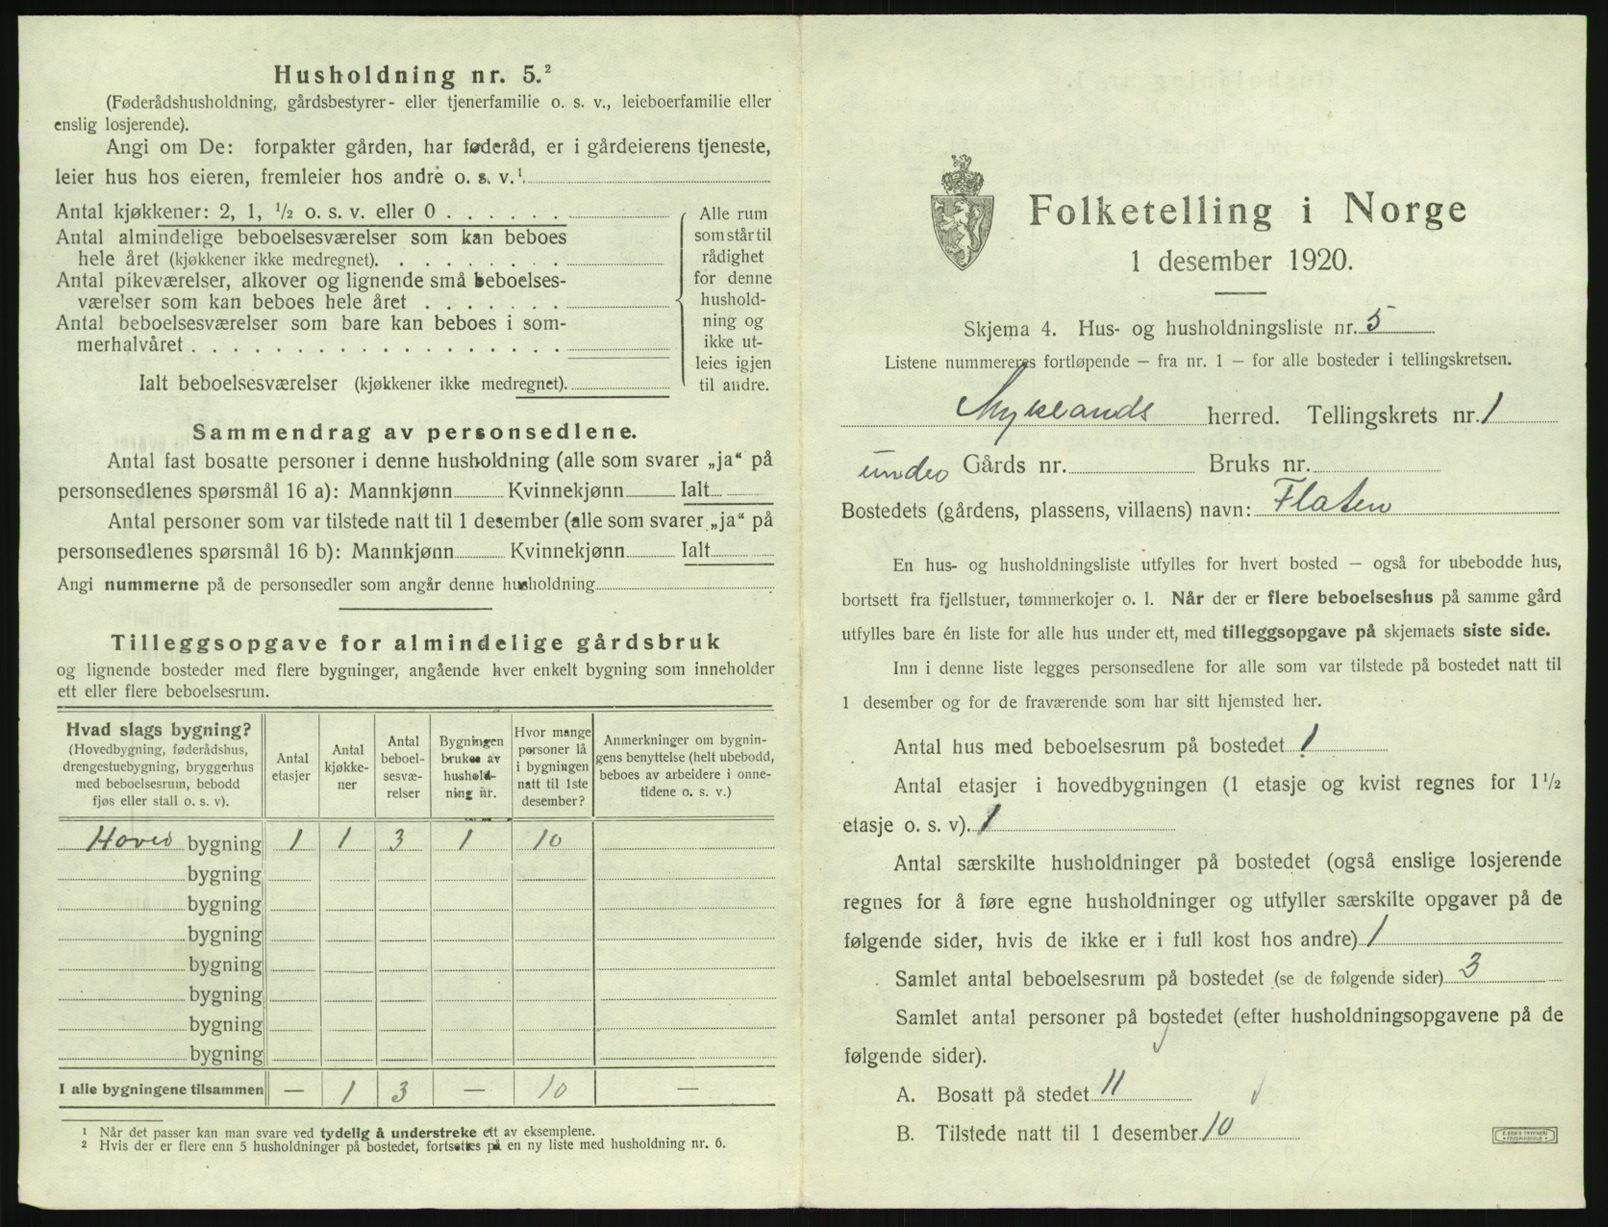 Husholdning nr. 5.²
(Føderådshusholdning, gårdsbestyrer- eller tjenerfamilie o. s. v., leieboerfamilie eller
enslig losjerende).
Angi om De: forpakter gården, har føderåd, er i gårdeierens tjeneste,
leier hus hos eieren, fremleier hos andre o. s. v.¹
Antal kjøkkener: 2, 1, ½ o. s. v. eller 0 . . . . . .
Antal almindelige beboelsesværelser som kan beboes
hele året (kjøkkener ikke medregnet). . . . . . . .
Antal pikeværelser, alkover og lignende små beboelses-
værelser som kan beboes hele året . . . . . . .
Antal beboelsesværelser som bare kan beboes i som-
merhalvåret . . . . . . . . . . . . . . . . . .
Ialt beboelsesværelser (kjøkkener ikke medregnet).
Alle rum
som står til
rådighet
for denne
hushold-
ning og
ikke ut-
leies igjen
til andre.
Sammendrag av personsedlene.
Antal fast bosatte personer i denne husholdning (alle som svarer „ja“ på
personsedlenes spørsmål 16 a): Mannkjønn Kvinnekjønn Ialt
Antal personer som var tilstede natt til 1 desember (alle som svarer „ja“ på
personsedlenes spørsmål 16 b): Mannkjønn Kvinnekjønn Ialt
Angi nummerne på de personsedler som angår denne husholdning
Tilleggsopgave for almindelige gårdsbruk
og lignende bosteder med flere bygninger, angående hver enkelt bygning som inneholder
ett eller flere beboelsesrum.
Hvad slags bygning?
(Hovedbygning, føderådshus,
drengestuebygning, bryggerhus
med beboelsesrum, bebodd
fjøs eller stall o. s. v).
Antal
etasjer
Antal
kjøkke-
ner
Antal
beboel-
sesvæ-
relser
Bygningen
brukes av
hushold-
ning nr.
Hvor mange
personer lå
i bygningen
natt til 1ste
desember?
Anmerkninger om bygnin-
gens benyttelse (helt ubebodd,
beboes av arbeidere i onne-
tidene o. s. v.)
Hoved bygning 1 1 3 1 10
bygning
bygning
bygning
bygning
bygning
bygning
bygning
I alle bygningene tilsammen — 1 3 — 10 —
¹ Når det passer kan man svare ved tydelig å understreke ett av eksemplene.
² Hvis der er flere enn 5 husholdninger på bostedet, fortsettes på en ny liste med husholdning nr. 6.
Folketelling i Norge
1 desember 1920.
Skjema 4. Hus- og husholdningsliste nr. 5
Listene nummereres fortløpende – fra nr. 1 – for alle bosteder i tellingskretsen.
Myklands herred. Tellingskrets nr. 1
under Gårds nr. Bruks nr.
Bostedets (gårdens, plassens, villaens) navn: Flaten
En hus- og husholdningsliste utfylles for hvert bosted – også for ubebodde hus,
bortsett fra fjellstuer, tømmerkojer o. l. Når der er flere beboelseshus på samme gård
utfylles bare én liste for alle hus under ett, med tilleggsopgave på skjemaets siste side.
Inn i denne liste legges personsedlene for alle som var tilstede på bostedet natt til
1 desember og for de fraværende som har sitt hjemsted her.
Antal hus med beboelsesrum på bostedet 1
Antal etasjer i hovedbygningen (1 etasje og kvist regnes for 1½
etasje o. s. v). 1
Antal særskilte husholdninger på bostedet (også enslige losjerende
regnes for å føre egne husholdninger og utfyller særskilte opgaver på de
følgende sider, hvis de ikke er i full kost hos andre) 1
Samlet antal beboelsesrum på bostedet (se de følgende sider) 3
Samlet antal personer på bostedet (efter husholdningsopgavene på de
følgende sider).
A. Bosatt på stedet 11
B. Tilstede natt til 1 desember 10